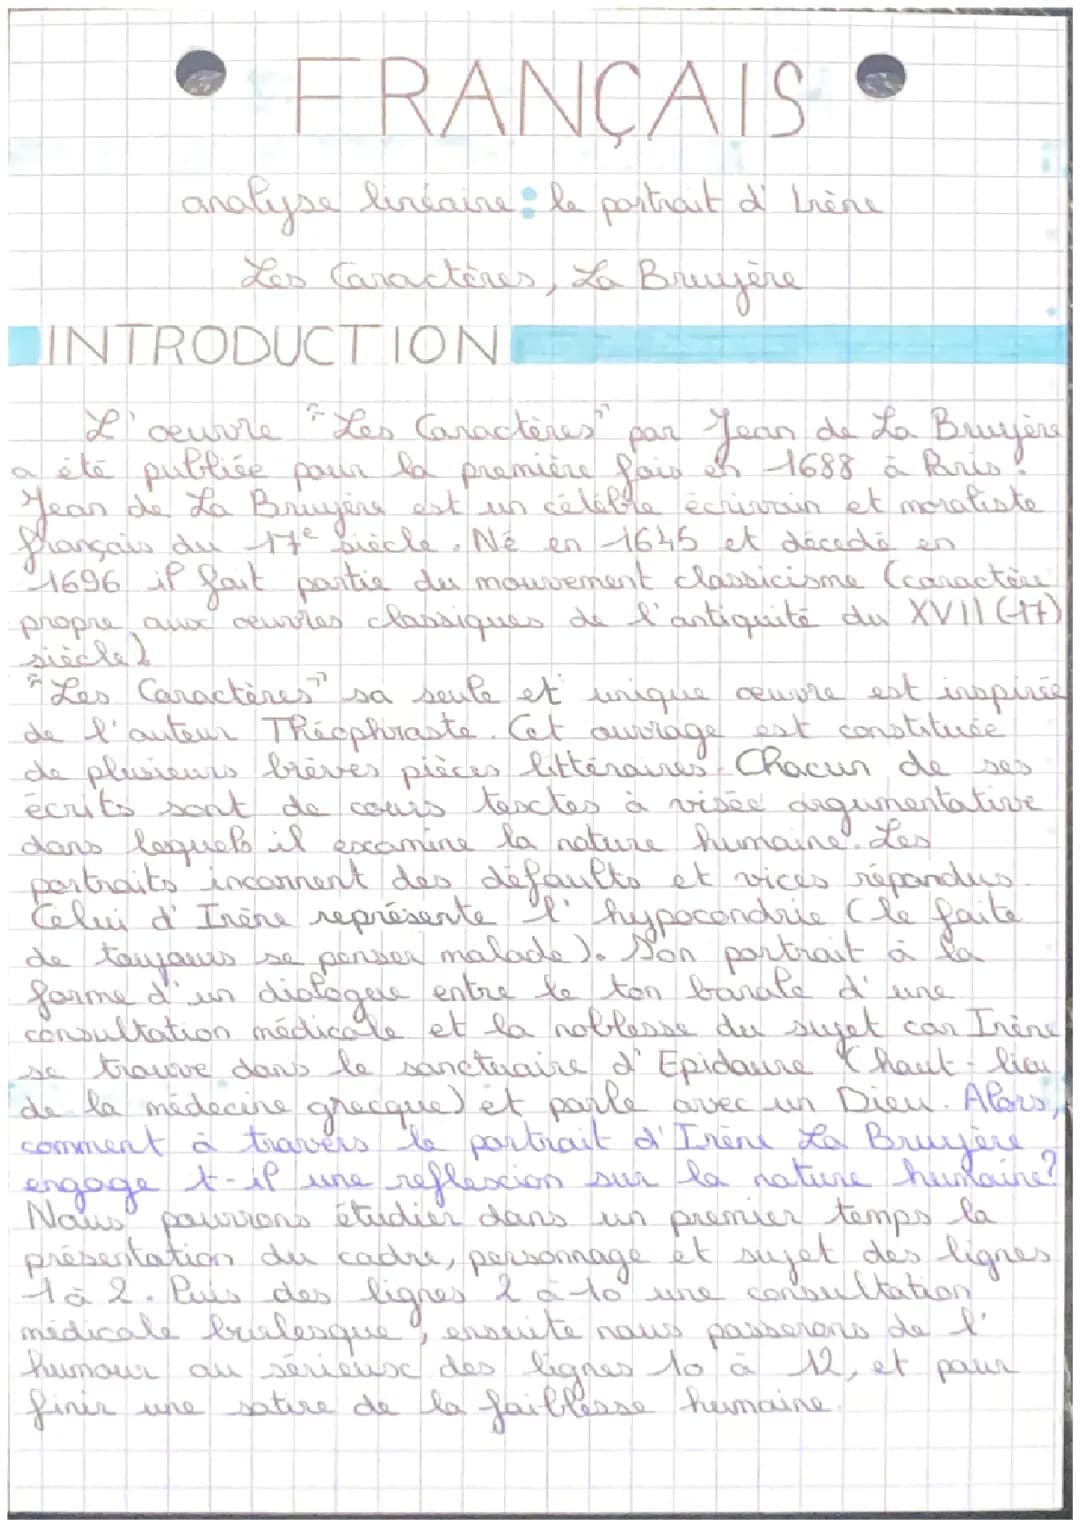 FRANÇAIS
analyse linéaire : le portrait d'Irène
Les Caractères, La Bruyère
INTRODUCTION
L'oeuvre "Les Caractères" par Jean de La Bruyère
a été publiée pour la première fois en 1688 à Paris.
Jean de La Bruyère est un célèbre écrivain et moraliste
français du 17e siècle. Né en 1645 et décedé en
1696 il fait partie du mouvement classicisme (caractère
propre aux oeuvres classiques de l'antiquité du XVII (17)
siècle).
"Les Caractères" sa seule et unique oeuvre est inspirée
de l'auteur Théophraste. Cet ouvrage est constituée
de plusieurs brèves pièces littéraires. Chacun de ses
écrits sont de cours textes à visée argumentative
dans lequels il examine la nature humaine. Les
portraits incarnent des défaults et vices répandus.
Celui d'Irène représente l'hypocondrie (le faite
de toujours se penser malade). Son portrait à la
forme d'un dialogue entre le ton banale d'une
consultation médicale et la noblesse du sujet car Irène
se trouve dans le sanctuaire d'Epidaure (haut-lieu
de la médecine grecque) et parle avec un Dieu. Alors,
comment à travers le portrait d'Irène La Bruyère
engage t-il une reflexion sur la nature humaine?
Nous pourrons étudier dans un premier temps la
présentation du cadre, personnage et sujet des lignes
1 à 2. Puis des lignes 2 à 10 une consultation
médicale burlesque, ensuite nous passerons de l'
humour au sérieux des lignes 10 à 12, et pour
finir une satire de la faiblesse humaine.